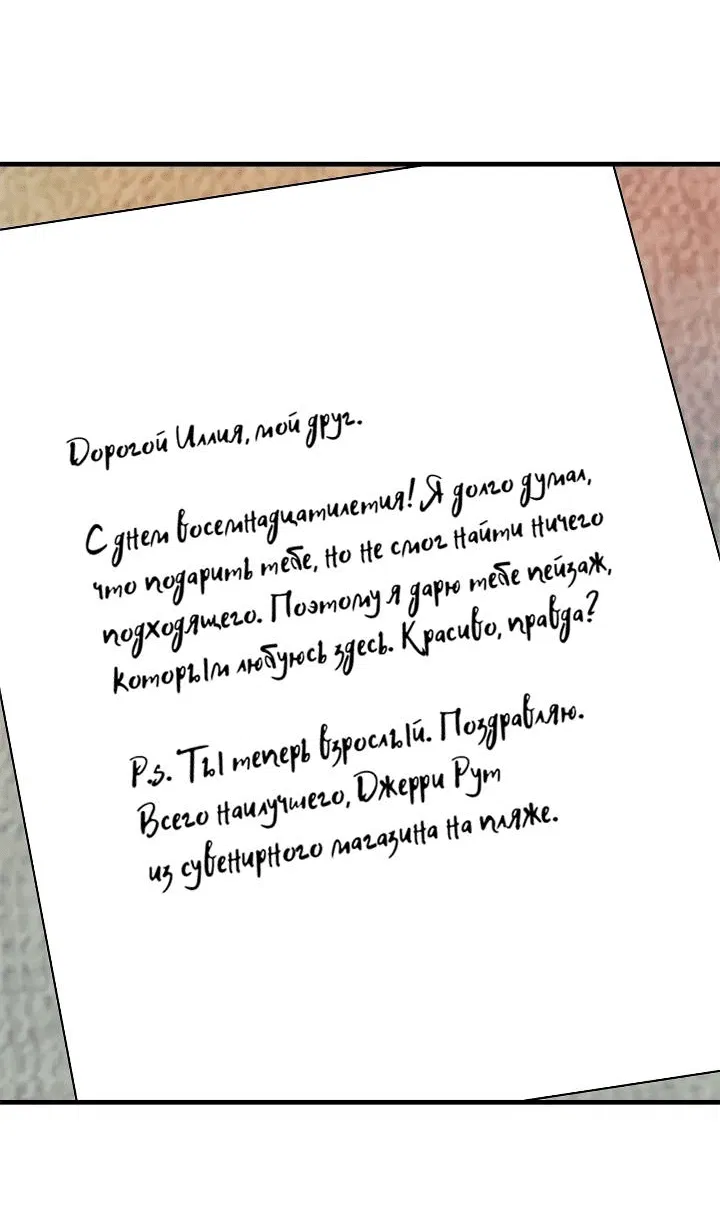 Дорогой Иллия, мой друг.
С днем восемнадцатилетия! Я долго думал,
что подарить тебе, но не смог найти ничего
подходящего. Поэтому я дарю тебе пейзаж,
которым любуюсь здесь. Красиво, правда?
P.s. Ты теперь взрослый. Поздравляю.
Всего наилучшего, Джерри Рут
из сувенирного магазина на пляже.